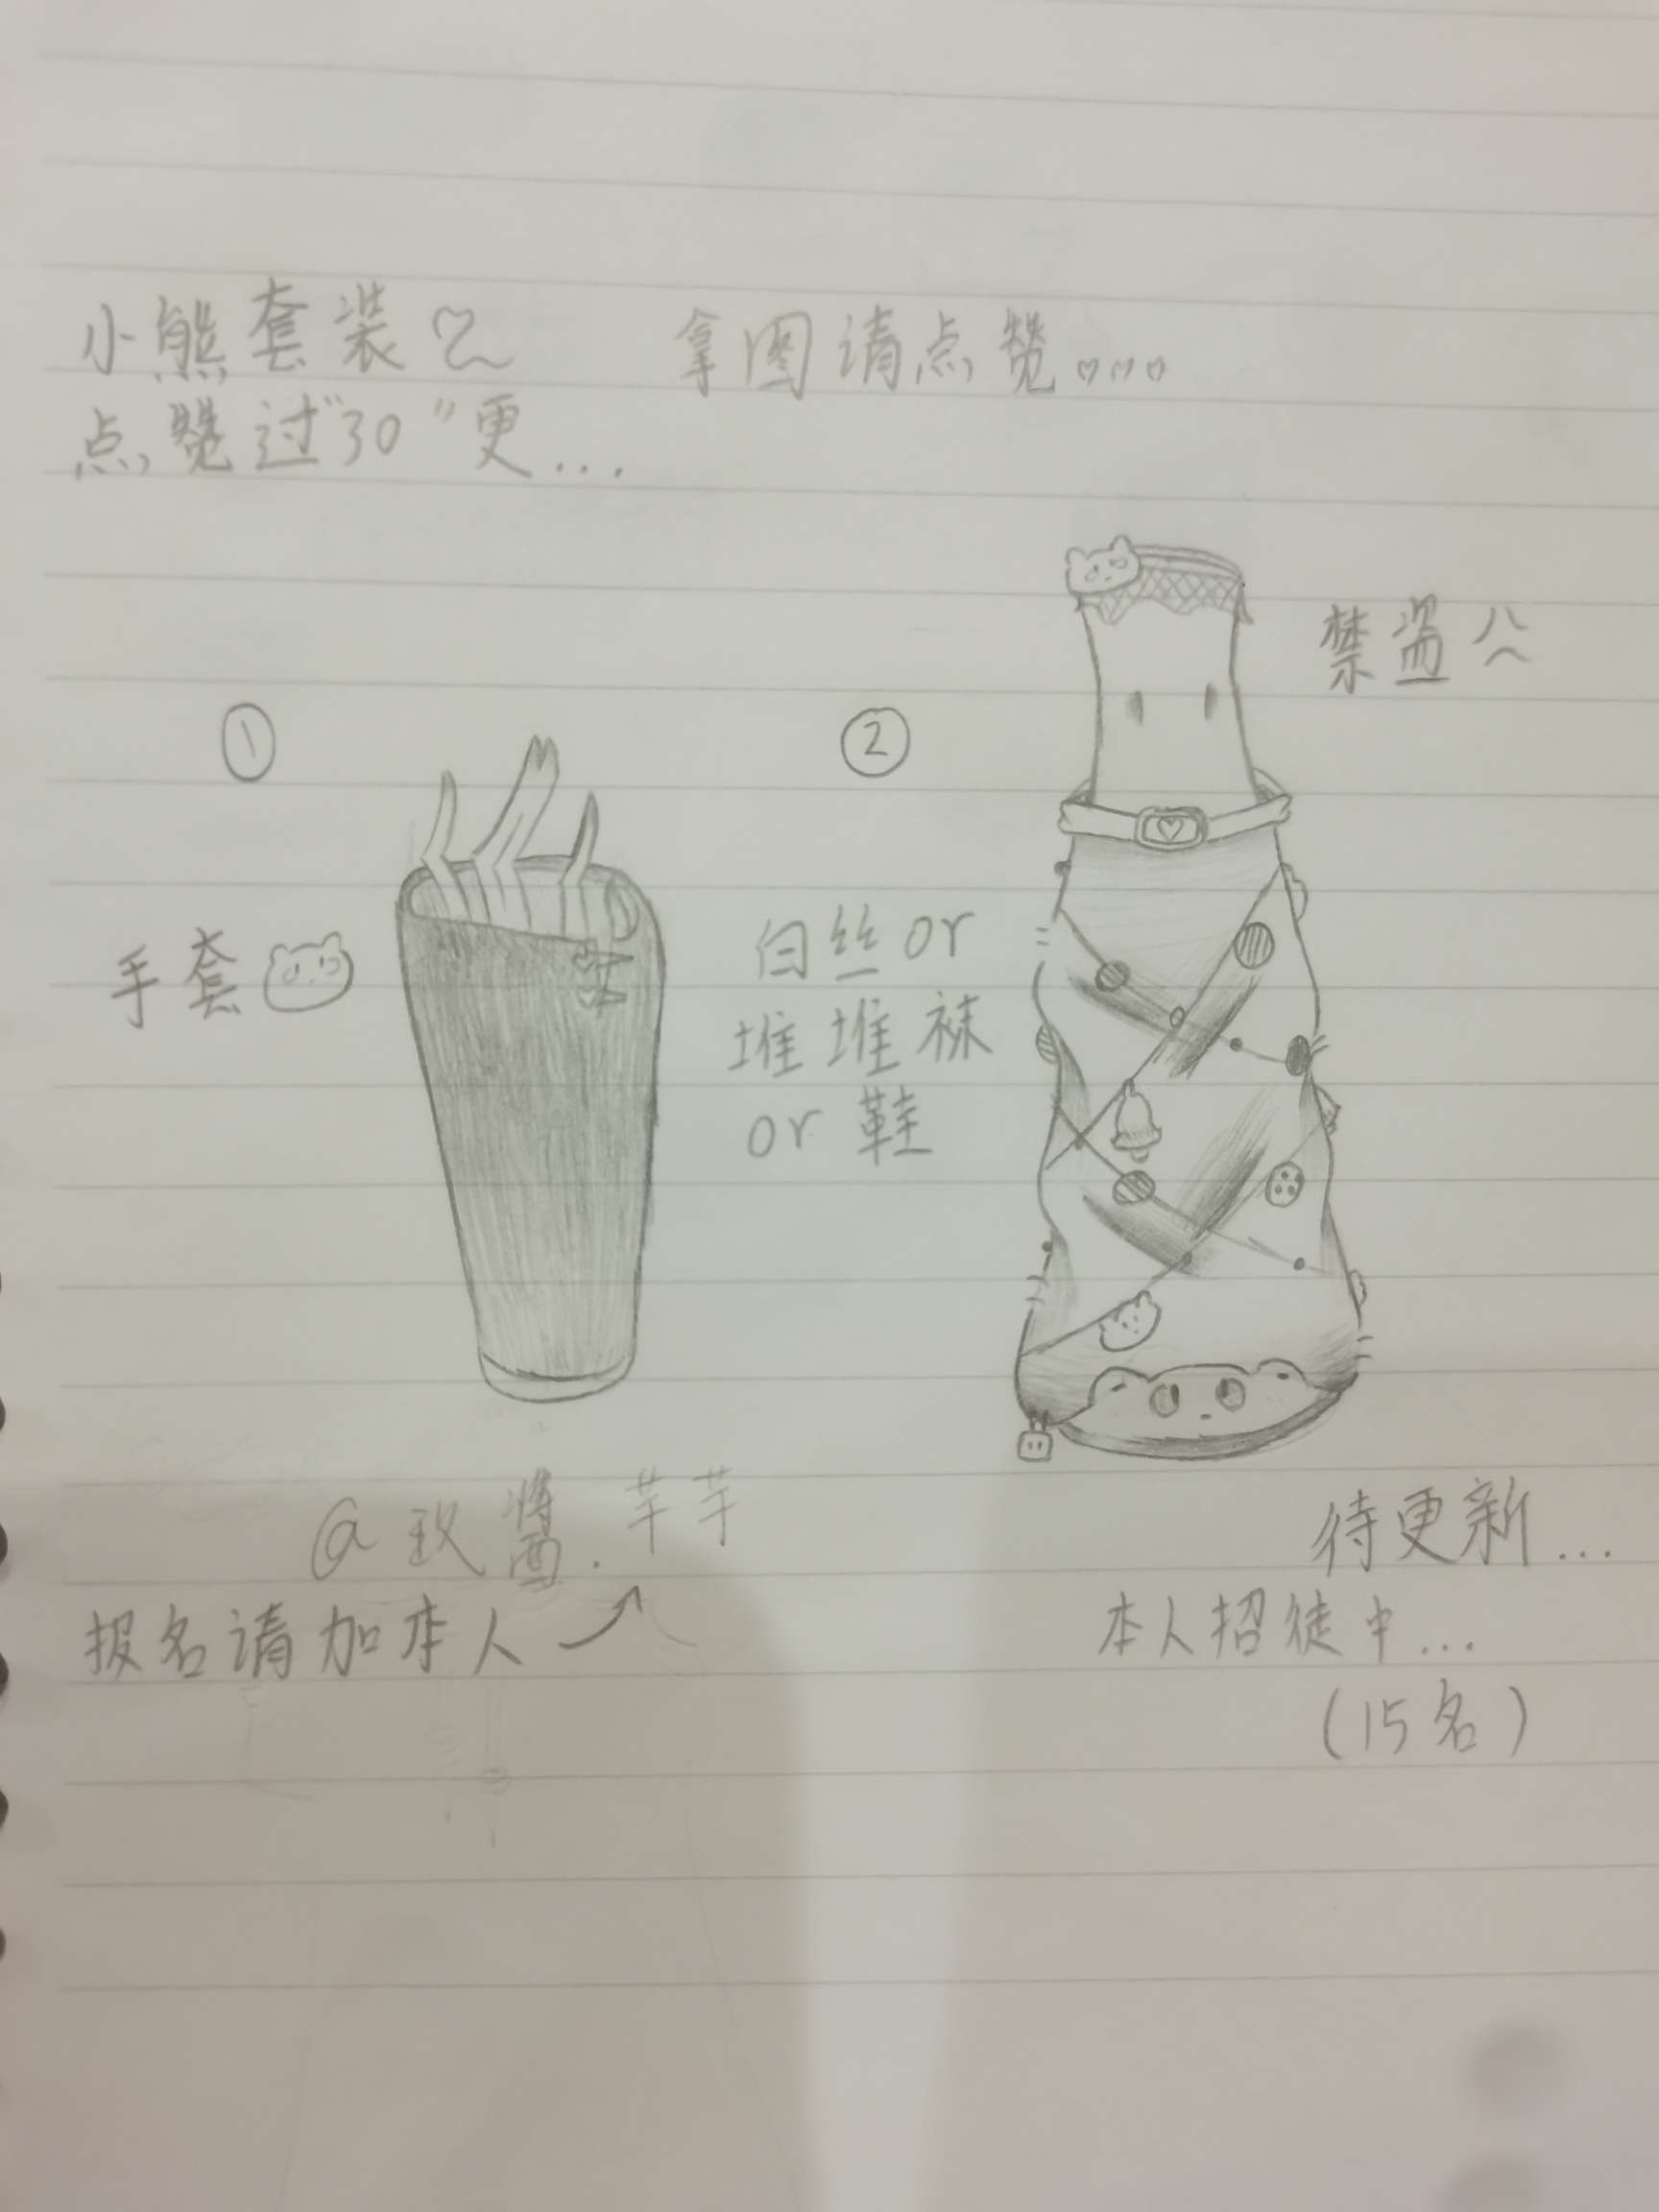 小熊套装
拿图请点赞。。。
点赞过"30"更...
禁盗
①
②
手套
白丝or
堆堆袜
or 鞋
@玖酱.芋芋
待更新...
报名请加本人
本人招徒中...
(15名)